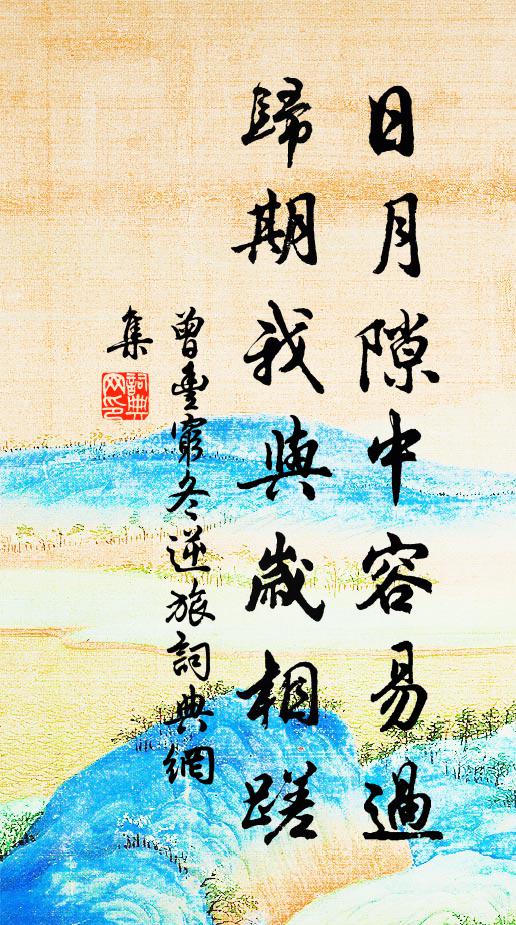 日月隙中容易過
歸期我與歲相蹉
曾豐窮冬逆旅詞典網
集
詞典
网印